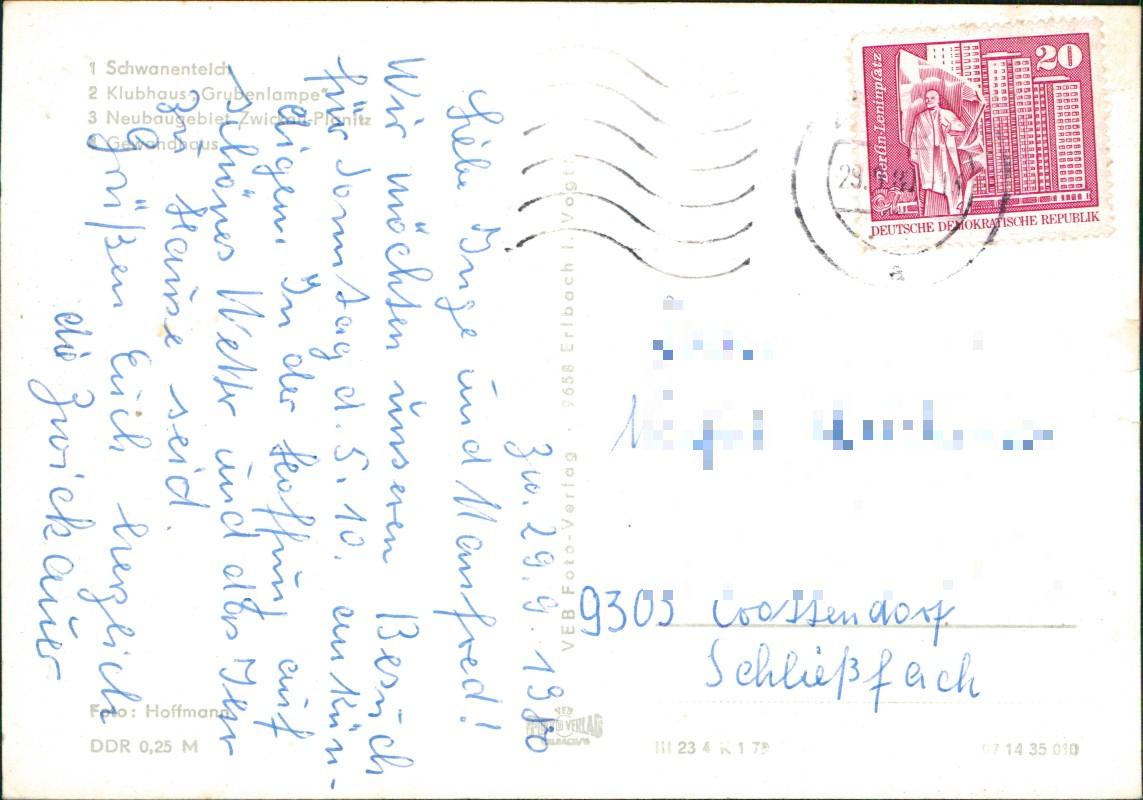 1 Schwanenteich
2 Klubhaus „Grubenlampe"
3 Neubaugebiet Zwickau-Planitz
4 Gewandhaus
Zw. 29.9.1980
Liebe Inge und Manfred!
Wir möchten unseren Besuch
für Sonntag d. 5.10. ankün-
digen. In der Hoffnung auf
schönes Wetter und daß Ihr
zu Hause seid.
Grüßen Euch herzlich
die Zwickauer
Foto: Hoffmann
DDR 0,25 M
VEB Foto-Verlag · 9658 Erlbach i. Vogtl.
III 23 4 K 1 79
07 14 35 010
Berlin-Leninplatz
20
DEUTSCHE DEMOKRATISCHE REPUBLIK
a
9303
Schließfach